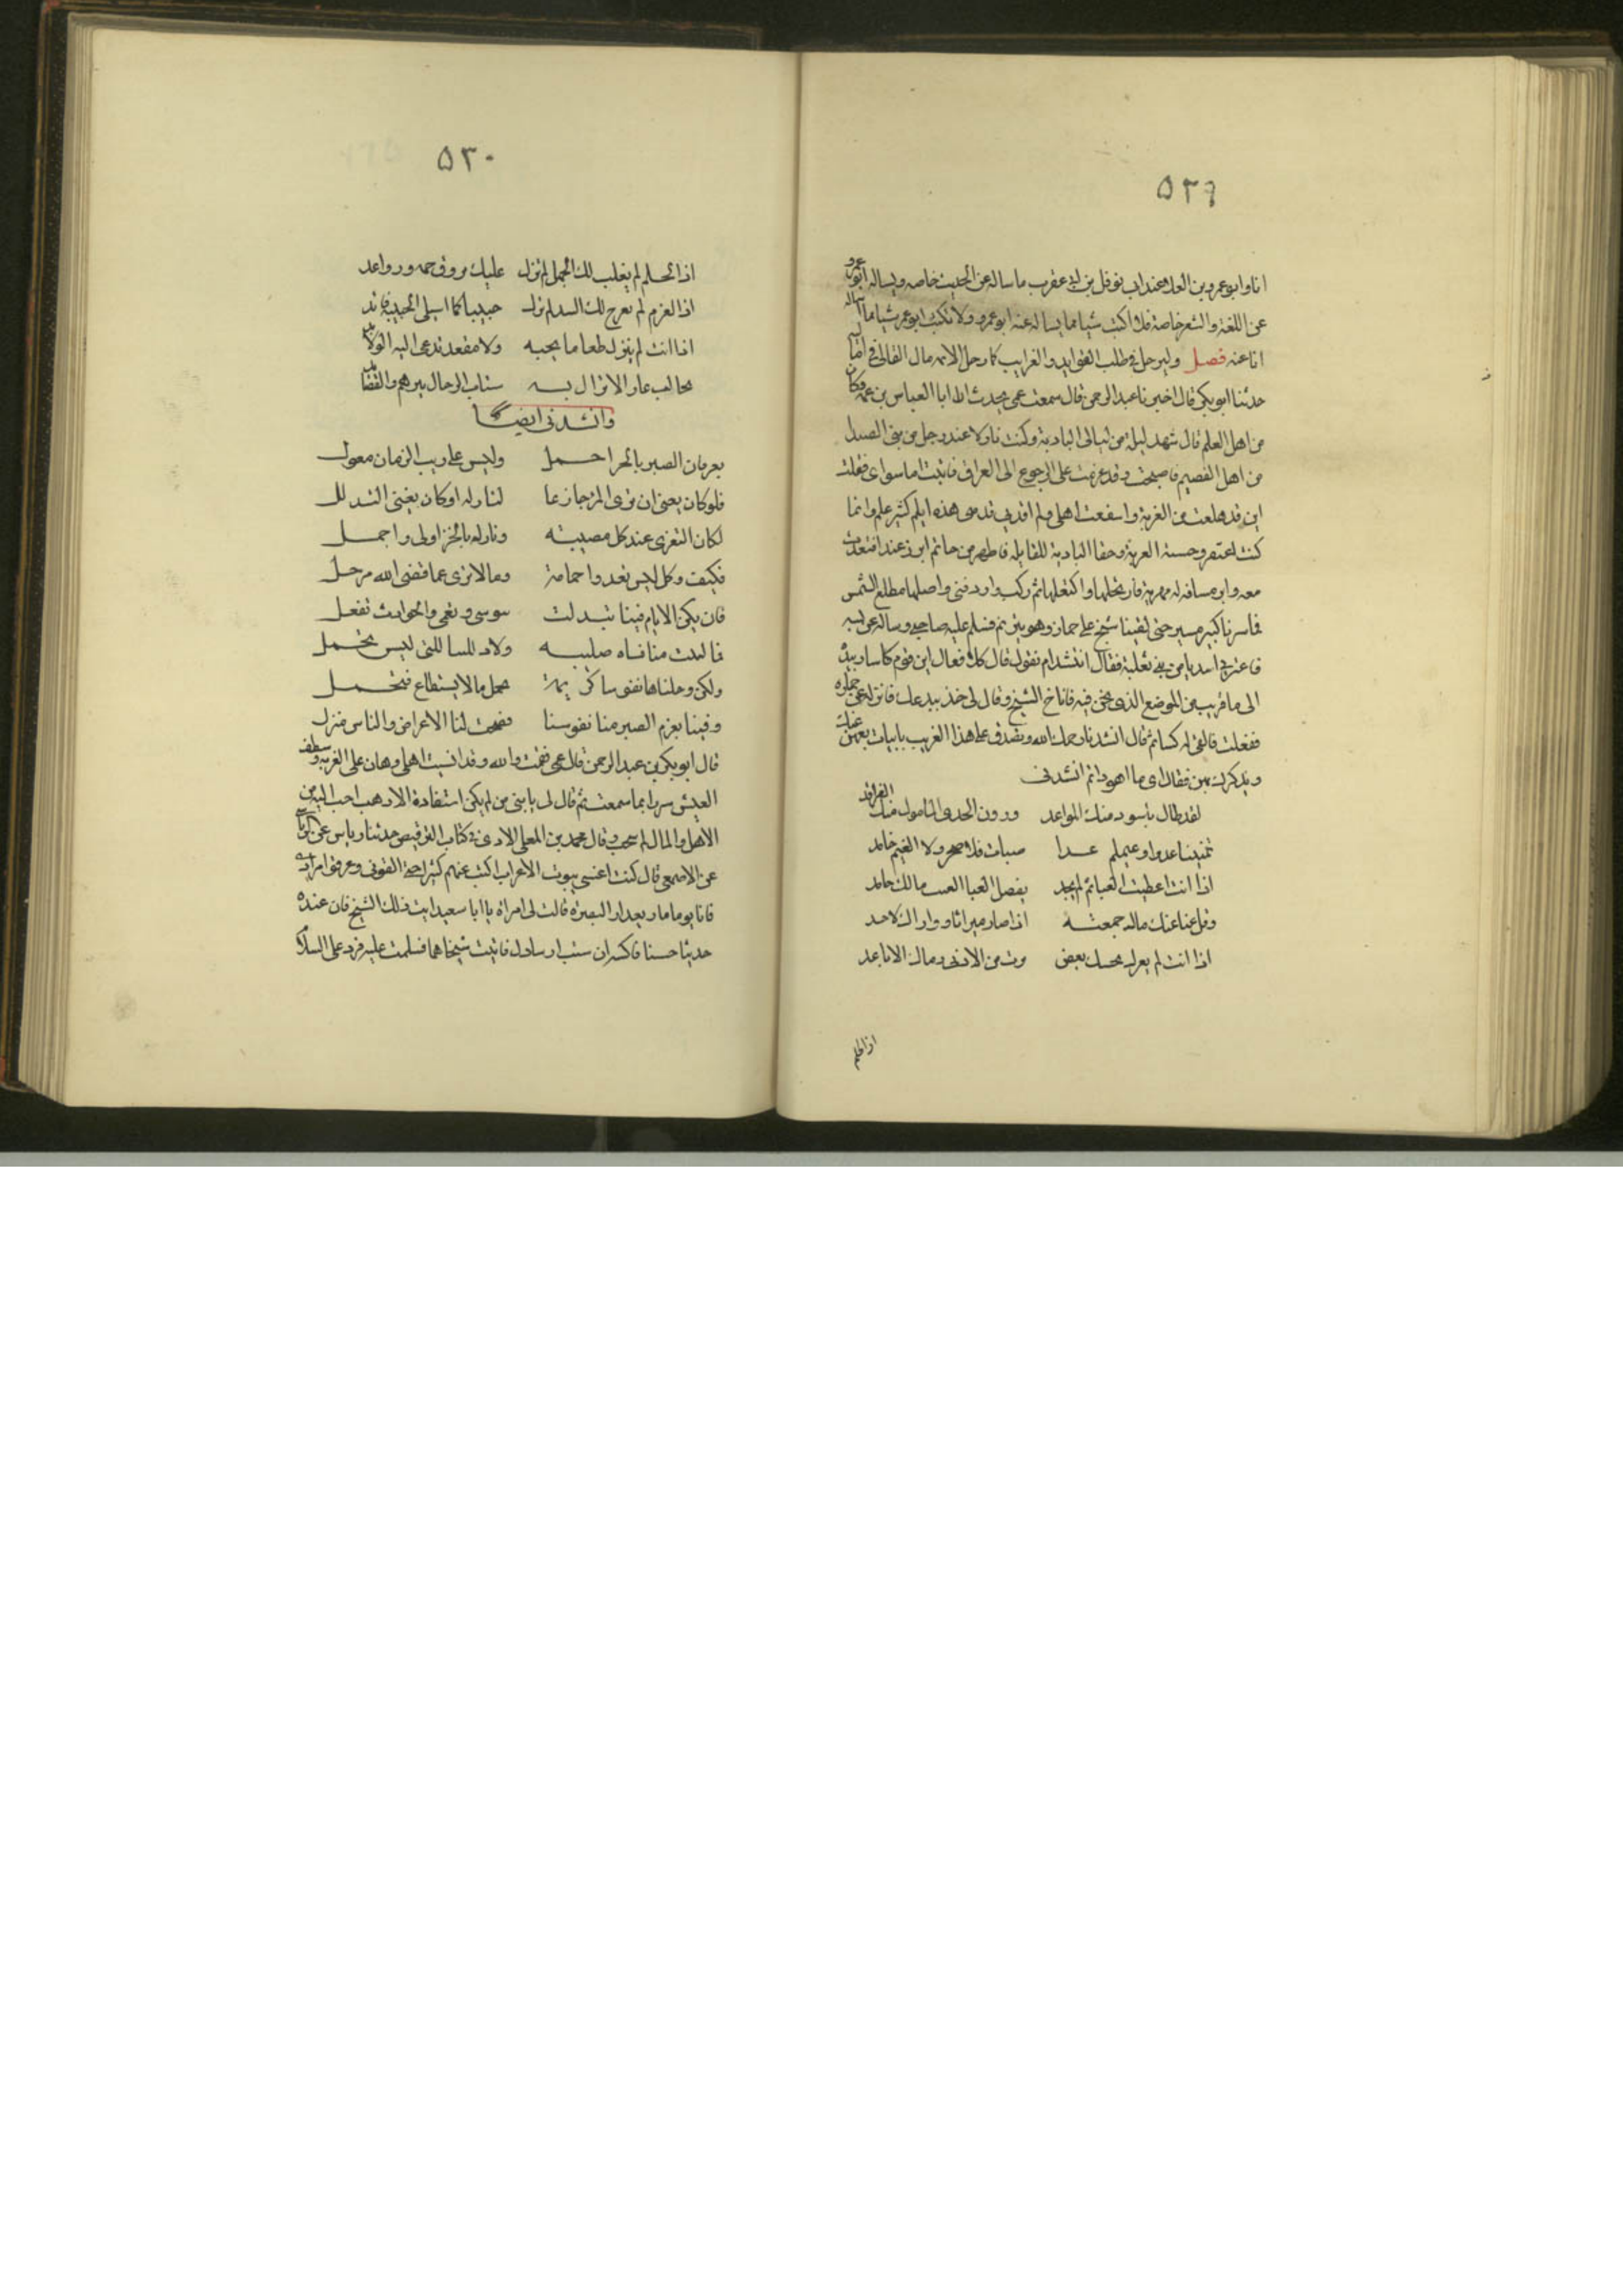 ٥٢٩
انا وابو عمرو بن العلا عند ابى نوفل بن ابى عقرب ما ساله عن الحديث خاصه ويساله ابو عمرو
عن اللغة والشعر خاصة فلا اكتب شيا مما يساله عنه ابو عمرو ولا يكتب ابو عمر شيا مما اساله
انا عنه فصل وليرحل فى طلب الفوايد والغرايب كما رحل الايمه قال القالى فى اماليه
حدثنا ابو بكر قال اخبرنا عبد الرحمن قال سمعت عمى يحدث ان ابا العباس بن عمه وكان
من اهل العلم قال شهد ليلة من ليالى البادية وكنت نازلا عند رجل من بنى الصيدا
من اهل القصيم فاصبحت وقد عزمت على الرجوع الى العراق فاتيت اما سواى فقلت
انى قد هلعت من الغربة واشفعت اهلى ولم افد فى قدمى هذه اليكم كثير علم وانما
كنت اغتفر وحشة الغربة وجفا البادية للفايده فاظهر
معه وابرم سافه له مهرية فارتحلها واكتفلها ثم ركب واردفنى واصلها مطلع الشمس
فما سرنا كبير مسير حتى لقينا شيخ على حمار وهو يترنم فسلم عليه صاحبى وساله عن نسبه
فاعتزى اسديا من بنى ثعلبة فقال اتنشد ام تقول قال كلا فقال اين فاشار بيده
الى ما قريب من الموضع الذى نحن فيه فاناخ الشيخ وقال لى خذ بيد عمك فانزله عن حماره
ففعلت فالقى له كسا ثم قال انشدنا رحمك الله وتصدق على هذا الغريب بابيات يعيهن عنك
ويذكرك بهن فقال اى ها الله ذا ثم انشدنى
لقد طال يا سودا منك المواعد ودون الجدى المامول منك الفراقد
تمنيننا غدوا وغيمكم غدا ضباب فلا صحو ولا الغيم جايد
اذا انت اعطيت الغنا ثم لم تجد بفضل الغنا الفيت مالك حامد
وقل غنا عنك مال جمعته اذا صار ميراثا وواراك لاحد
اذا انت لم يعرك بعض من الادنى رماك الاباعد
اذا الحلم
٥٣٠
اذا الحلم لم يغلب لك الجهل لم تزل عليك بروق جمه ورواعد
اذا العزم لم يفرج لك الشك لم تزل جنيبا كما استتلى الجنيبة قايد
اذا انت لم تترك طعاما تحبه ولا مقعد تدعى اليه الولايد
تجللت عار لا يزال يشبه سباب الرجال نثرهم والقصايد
وانشدنى ايضا
تعز فان الصبر بالحر اجمل وليس على ريب الزمان معول
فلو كان يغنى ان ترى المر جازعا لنازله او كان يغنى التذلل
لكان التعزى عند كل مصيبته ونازله بالحر اولى واجمل
فكيف وكل ليس يعدوا حمامة وما لامرى عما قضى الله مزحل
فان يكن الايام فينا تبدلت ببوسى ونعمى والحوادث تفعل
فما لينت منا قناه صليبه ولا ذللتنا للتى ليس تجمل
ولكن رحلناها نفوسا كريمة تحمل ما لا يستطاع فتحمل
وقينا بعزم الصبر منا نفوسنا فصحت لنا الاعراض والناس هزل
قال ابو بكر بن عبد الرحمن قال عمى فقمت والله وقد انسيت اهلى وهان على الغربة وشظف
العيش سرورا بما سمعت ثم قال لى يا بنى من لم يكن استفادة الادب احب اليه من
الاهل والمال لم ينجب وقال محمد بن المعلى الازدى فى كتاب الترقيص حدثنا رياش
عن الاصمعى قال كنت اغشى بيوت الاعراب اكتب عنهم كثيرا حتى الفونى وعرفوا مرادى
فانا يوما مار بعذارى البصرة قالت لى امراة يا ابا سعيد ايت ذلك الشيخ فان عنده
حديثا حسنا فاكتبه ان شيت فاتيت شيخا هما فسلمت عليه فرد على السلام